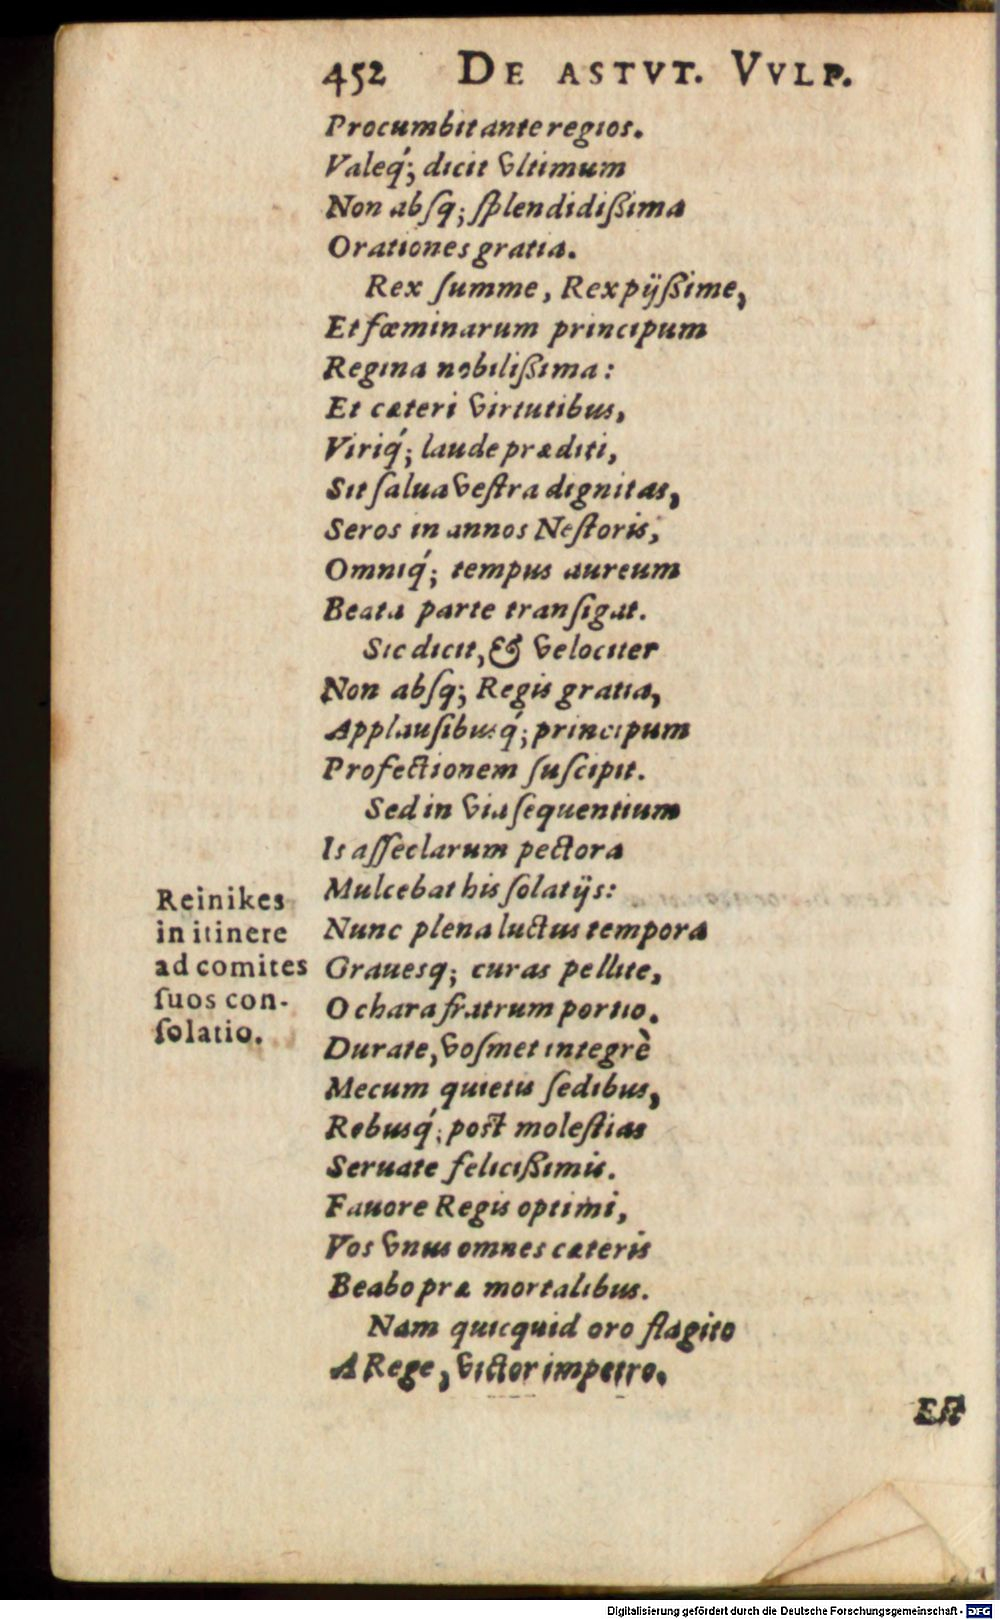 452 DE ASTVT. VVLP.
Procumbit ante regios.
Valeq́; dicit vltimum
Non absq; splendidißima
Orationes gratia.
Rex summe, Rex pijßime,
Et fœminarum principum
Regina nobilißima:
Et cæteri virtutibus,
Viriq́; laude præditi,
Sit salua vestra dignitas,
Seros in annos Nestoris,
Omniq́; tempus aureum
Beata parte transigat.
Sic dicit, & velociter
Non absq; Regis gratia,
Applausibusq́; principum
Profectionem suscipit.
Sed in via sequentium
Is asseclarum pectora
Mulcebat his solatijs:
Nunc plena luctus tempora
Grauesq; curas pellite,
O chara fratrum portio.
Durate, vosmet integrè
Mecum quietis sedibus,
Rebusq́; post molestias
Seruate felicißimis.
Fauore Regis optimi,
Vos vnus omnes cæteris
Beabo præ mortalibus.
Nam quicquid oro flagito
A Rege, victor impetro.
Est
Reinikes
in itinere
ad comites
suos con-
solatio.
Digitalisierung gefördert durch die Deutsche Forschungsgemeinschaft - DFG